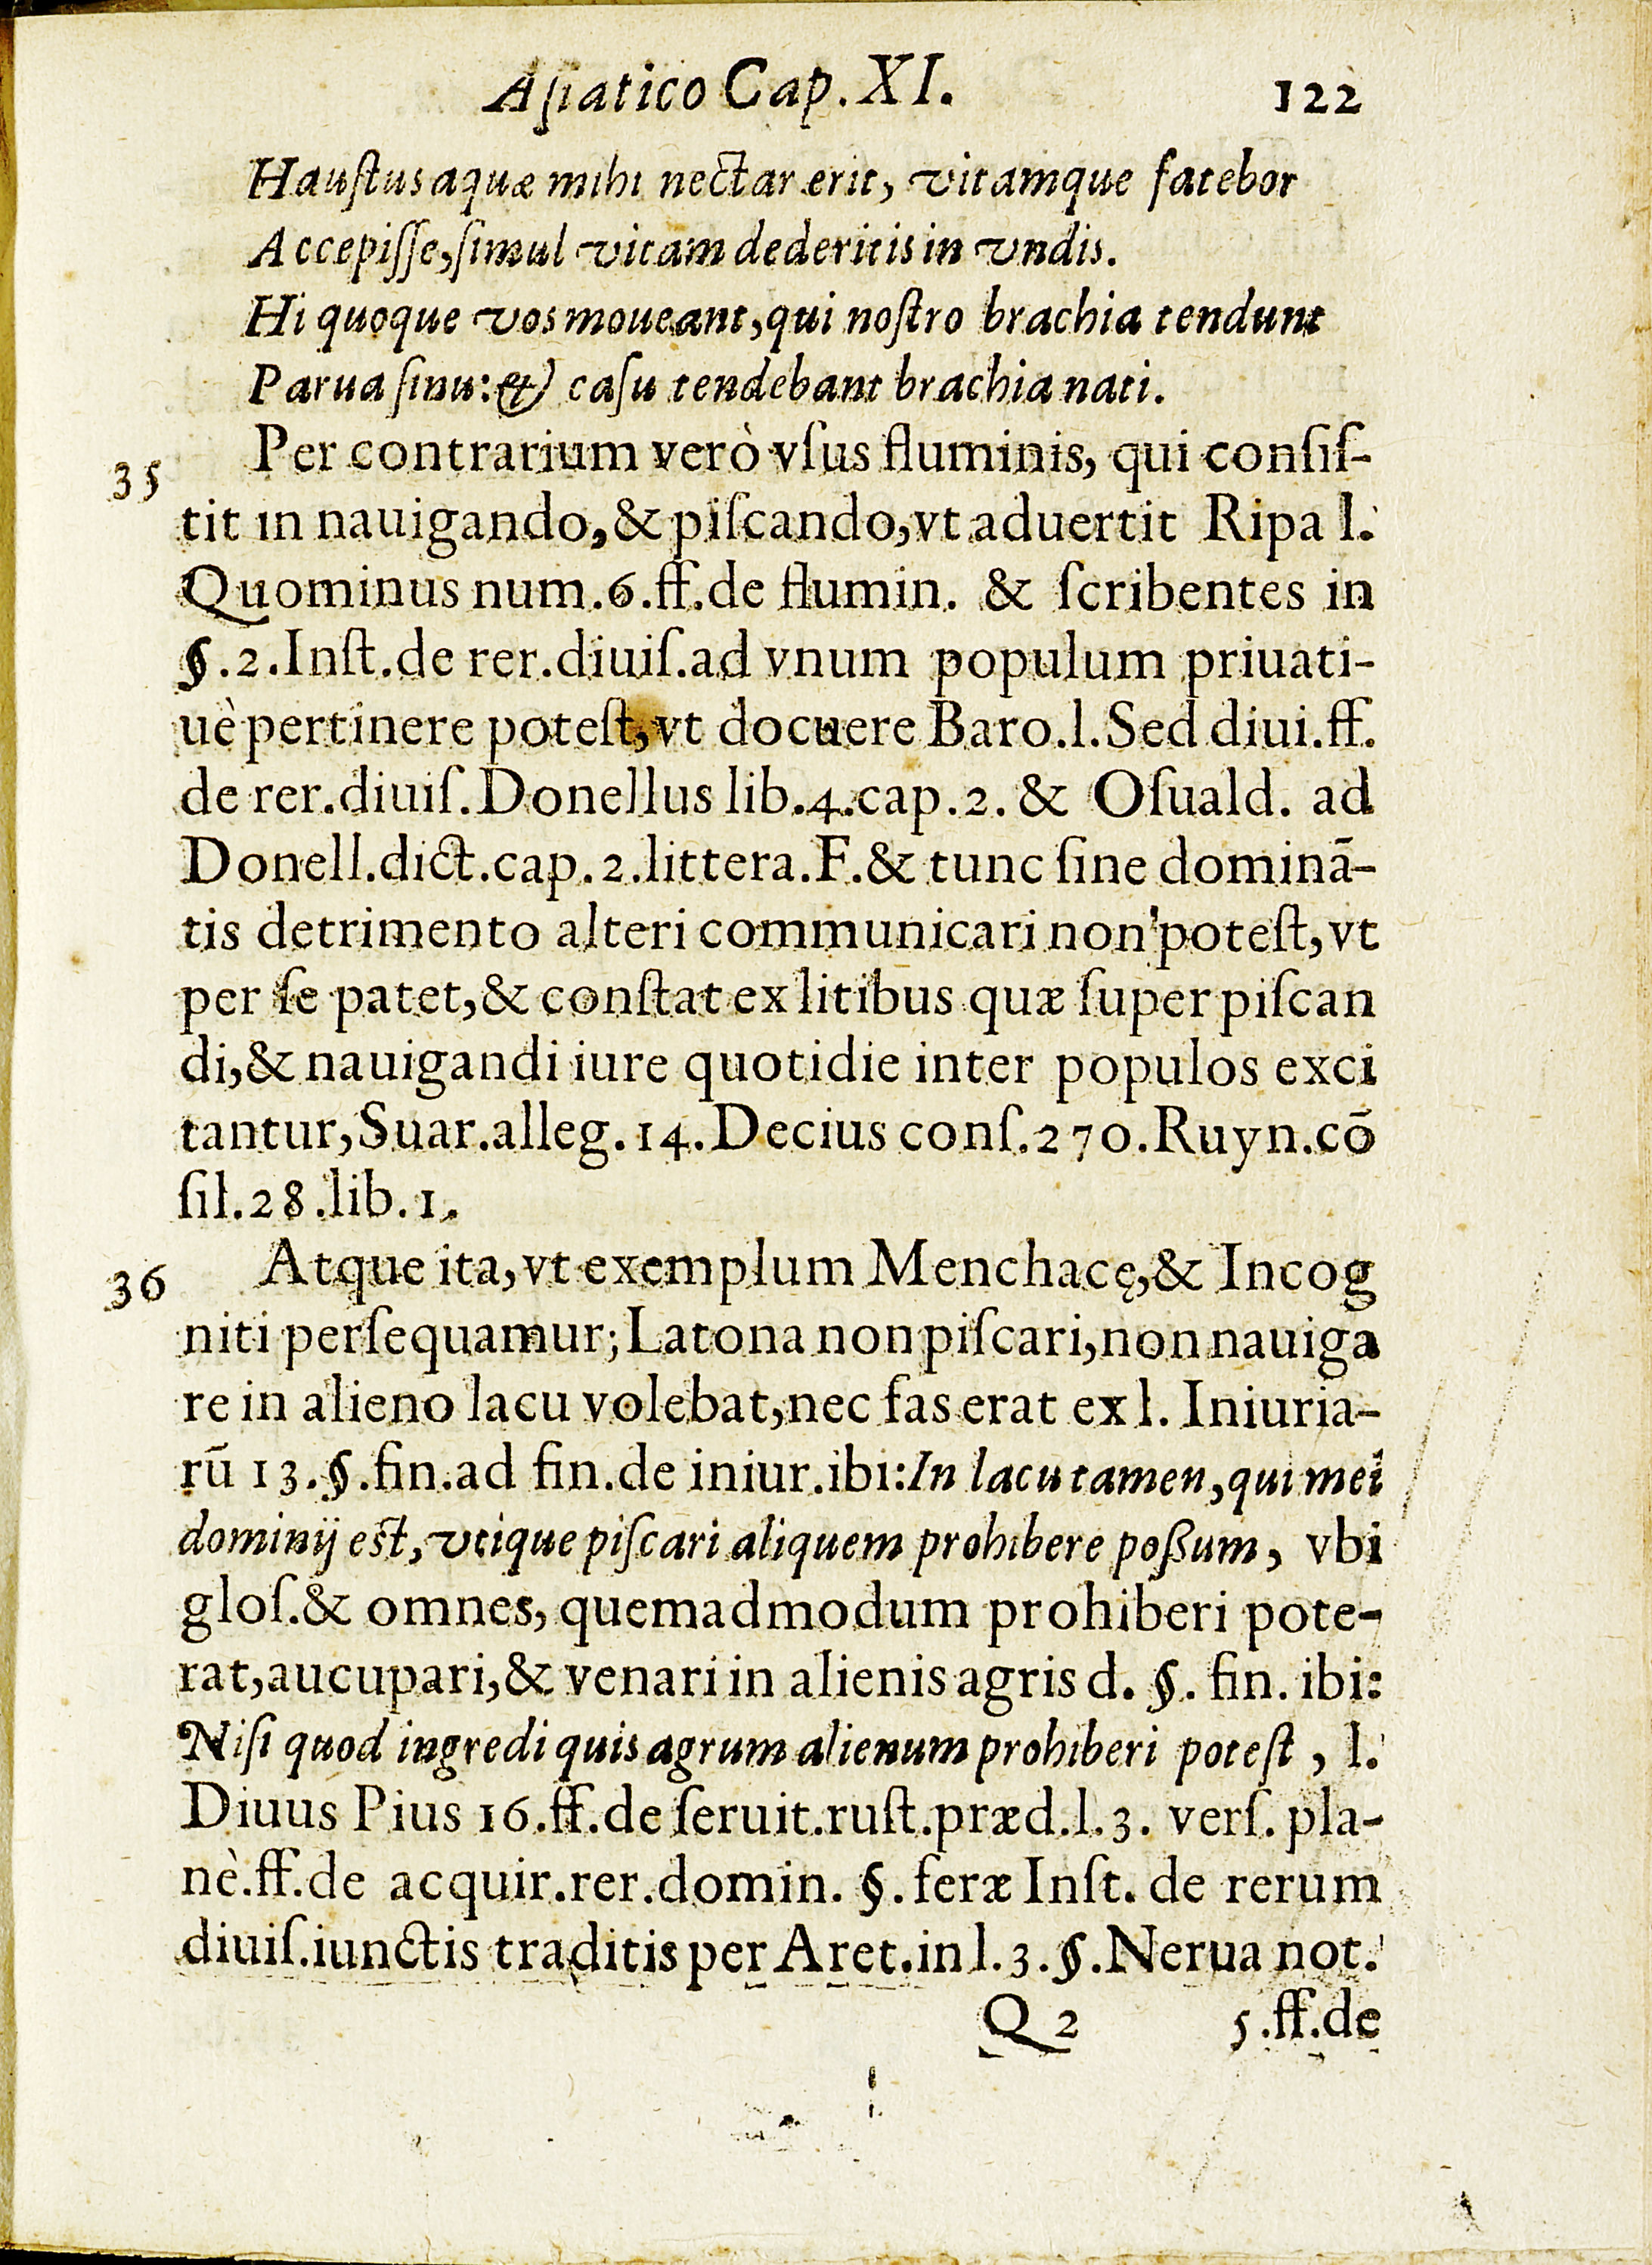 Aſiatico Cap. XI. 122
Hauſtus aquæ mihi nectar erit, vitamque fatebor
Accepiſſe, ſimul vitam dederitis in vndis.
Hi quoque vos moueant, qui noſtro brachia tendunt
Parua ſinu: & caſu tendebant brachia nati.
35 Per contrarium verò vſus fluminis, qui conſiſ-
tit in nauigando, & piſcando, vt aduertit Ripa l.
Quominus num.6.ff.de flumin. & ſcribentes in
§.2.Inſt.de rer.diuiſ.ad vnum populum priuati-
uè pertinere poteſt, vt docuere Baro.l.Sed diui.ff.
de rer.diuiſ.Donellus lib.4.cap.2. & Oſuald. ad
Donell.dict.cap.2.littera.F.& tunc ſine dominā-
tis detrimento alteri communicari non poteſt, vt
per ſe patet, & conſtat ex litibus quæ ſuper piſcan
di, & nauigandi iure quotidie inter populos exci
tantur, Suar.alleg.14.Decius conſ.270.Ruyn.cō
ſil.28.lib.1.
36 Atque ita, vt exemplum Menchacę, & Incog
niti perſequamur; Latona non piſcari, non nauiga
re in alieno lacu volebat, nec fas erat ex l. Iniuria-
rū 13.§.fin.ad fin.de iniur.ibi: In lacu tamen, qui mei
dominij eſt, vtique piſcari aliquem prohibere poßum, vbi
gloſ.& omnes, quemadmodum prohiberi pote-
rat, aucupari, & venari in alienis agris d. §. fin. ibi:
Niſi quod ingredi quis agrum alienum prohiberi poteſt, l.
Diuus Pius 16.ff.de ſeruit.ruſt.præd.l.3. verſ. pla-
nè.ff.de acquir.rer.domin. §. feræ Inſt. de rerum
diuiſ.iunctis traditis per Aret.in l.3.§.Nerua not.
Q 2 5.ff.de